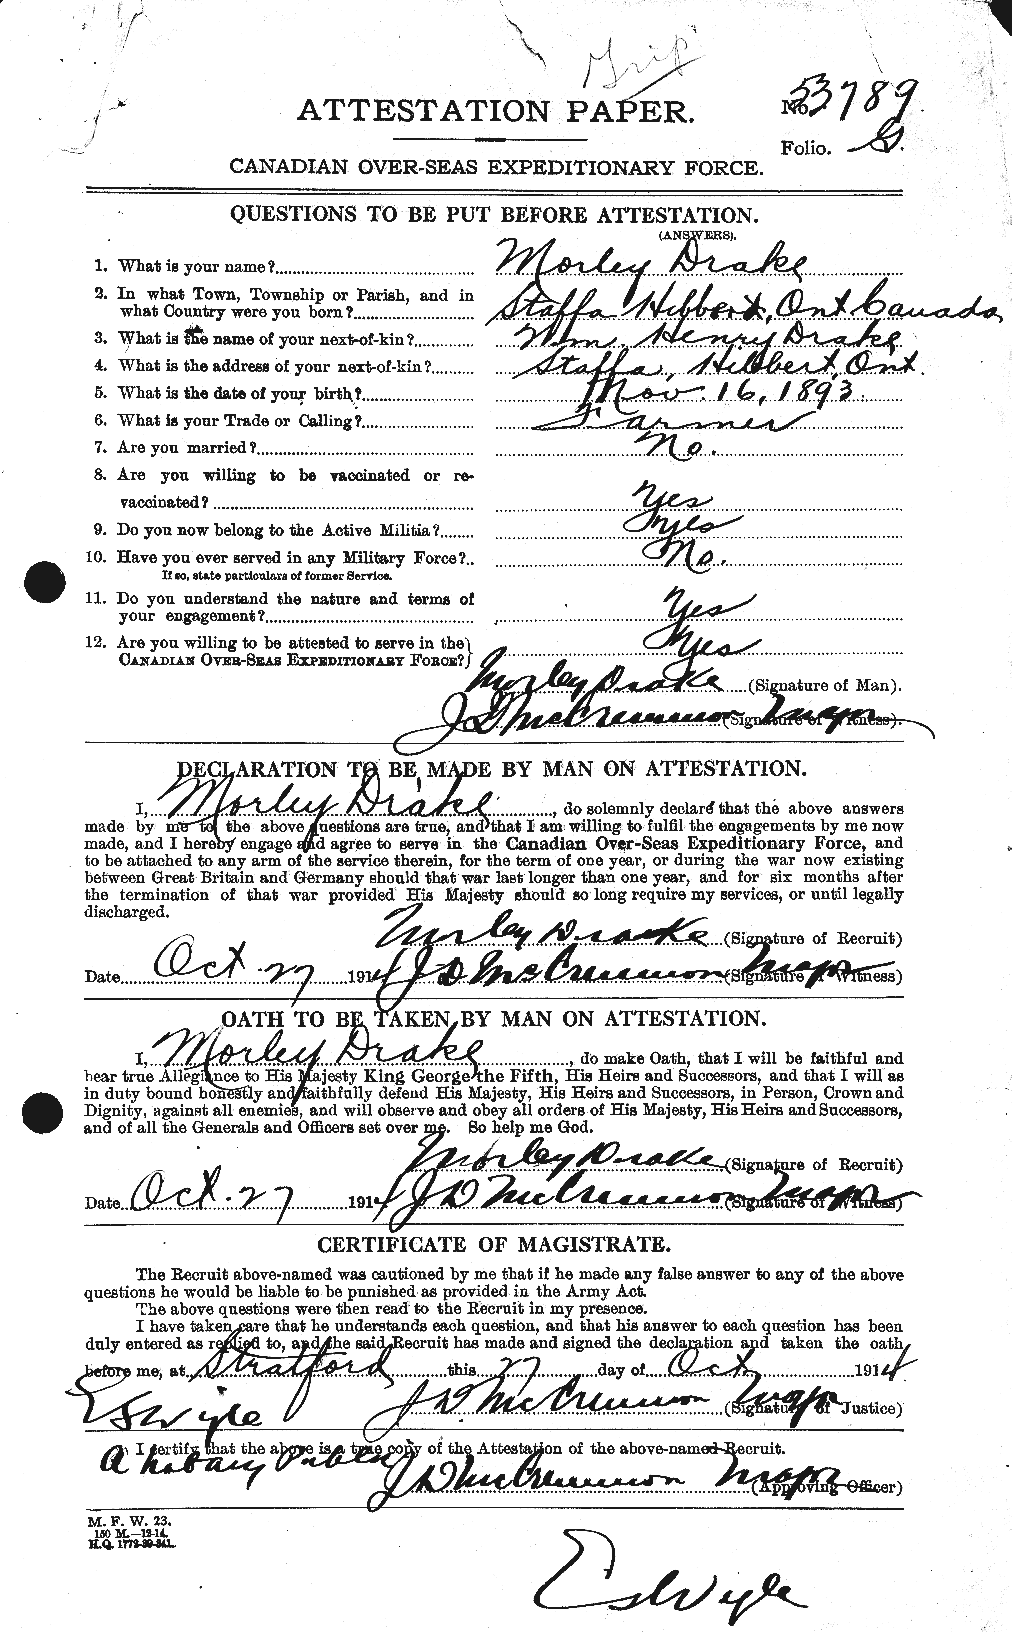 Grip
ATTESTATION PAPER.
No. 53789
Folio. G.
CANADIAN OVER-SEAS EXPEDITIONARY FORCE.
QUESTIONS TO BE PUT BEFORE ATTESTATION.
(ANSWERS).
1. What is your name? Morley Drake
2. In what Town, Township or Parish, and in
what Country were you born? Staffa Hibbert, Ont Canada
3. What is the name of your next-of-kin? Wm. Henry Drake
4. What is the address of your next-of-kin? Staffa, Hibbert, Ont.
5. What is the date of your birth? Nov. 16, 1893.
6. What is your Trade or Calling? Farmer
7. Are you married? No.
8. Are you willing to be vaccinated or re-
vaccinated? Yes
9. Do you now belong to the Active Militia? Yes
10. Have you ever served in any Military Force? No.
If so, state particulars of former Service.
11. Do you understand the nature and terms of
your engagement? Yes
12. Are you willing to be attested to serve in the
CANADIAN OVER-SEAS EXPEDITIONARY FORCE? Yes
Morley Drake (Signature of Man).
J D McCrimmon Major (Signature of Witness).
DECLARATION TO BE MADE BY MAN ON ATTESTATION.
I, Morley Drake, do solemnly declare that the above answers
made by me to the above questions are true, and that I am willing to fulfil the engagements by me now
made, and I hereby engage and agree to serve in the Canadian Over-Seas Expeditionary Force, and
to be attached to any arm of the service therein, for the term of one year, or during the war now existing
between Great Britain and Germany should that war last longer than one year, and for six months after
the termination of that war provided His Majesty should so long require my services, or until legally
discharged.
Morley Drake (Signature of Recruit)
Date Oct. 27 1914 J D McCrimmon Major (Signature of Witness)
OATH TO BE TAKEN BY MAN ON ATTESTATION.
I, Morley Drake, do make Oath, that I will be faithful and
bear true Allegiance to His Majesty King George the Fifth, His Heirs and Successors, and that I will as
in duty bound honestly and faithfully defend His Majesty, His Heirs and Successors, in Person, Crown and
Dignity, against all enemies, and will observe and obey all orders of His Majesty, His Heirs and Successors,
and of all the Generals and Officers set over me. So help me God.
Morley Drake (Signature of Recruit)
Date Oct. 27 1914 J D McCrimmon Major (Signature of Witness)
CERTIFICATE OF MAGISTRATE.
The Recruit above-named was cautioned by me that if he made any false answer to any of the above
questions he would be liable to be punished as provided in the Army Act.
The above questions were then read to the Recruit in my presence.
I have taken care that he understands each question, and that his answer to each question has been
duly entered as replied to, and the said Recruit has made and signed the declaration and taken the oath
before me, at Stratford this 27 day of Oct 1914
ESWyle J D McCrimmon Major (Signature of Justice)
I certify that the above is a true copy of the Attestation of the above-named Recruit.
A Notary Public J D McCrimmon Major (Approving Officer)
M. F. W. 23.
150 M.—12-14.
H.Q. 1772-39-841.
ESWyle